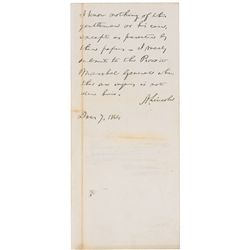 I know nothing of this
gentleman or his case,
except as presented by
these papers. I merely
submit to the Provost
Marshal General when
this an is not
A. Lincoln
Dec. 7, 1864